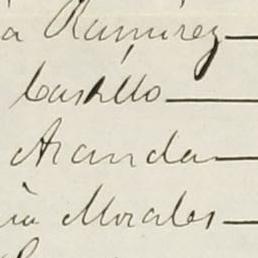 a Ramírez
Castillo
Aranda
ia Morales